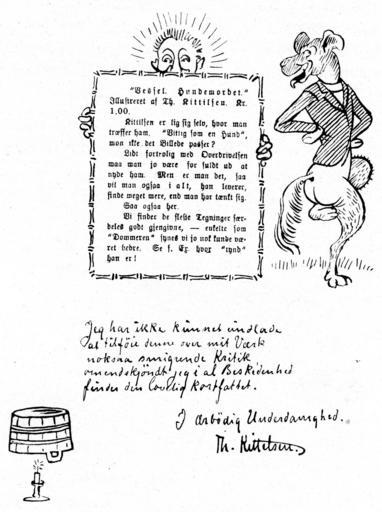 "Wessel. Hundemordet."
Illustreret af Th. Kittilsen. Kr.
1.00.
Kittilsen er lig sig selv, hvor man
træffer ham. "Vittig som en Hund",
mon ikke det Billede passer?
Lidt fortrolig med Overdrivelsen
maa man jo være for fuldt ud at
nyde ham. Men er man det, saa
vil man ogsaa i alt, han leverer,
finde meget mere, end man har tænkt sig.
Saa ogsaa her.
Vi finder de fleste Tegninger sær-
deles godt gjengivne, — enkelte som
"Dommeren" synes vi jo nok kunde væ-
ret bedre. Se f. Ex. hvor "tynd"
han er!
Jeg har ikke kunnet undlade
at tilföie denne over mit Værk
noksaa smigrende Kritik
omendskjöndt jeg i al Beskedenhed
finder den lovlig kortfattet.
I ærbödig Underdanighed.
Th. Kittelsen.